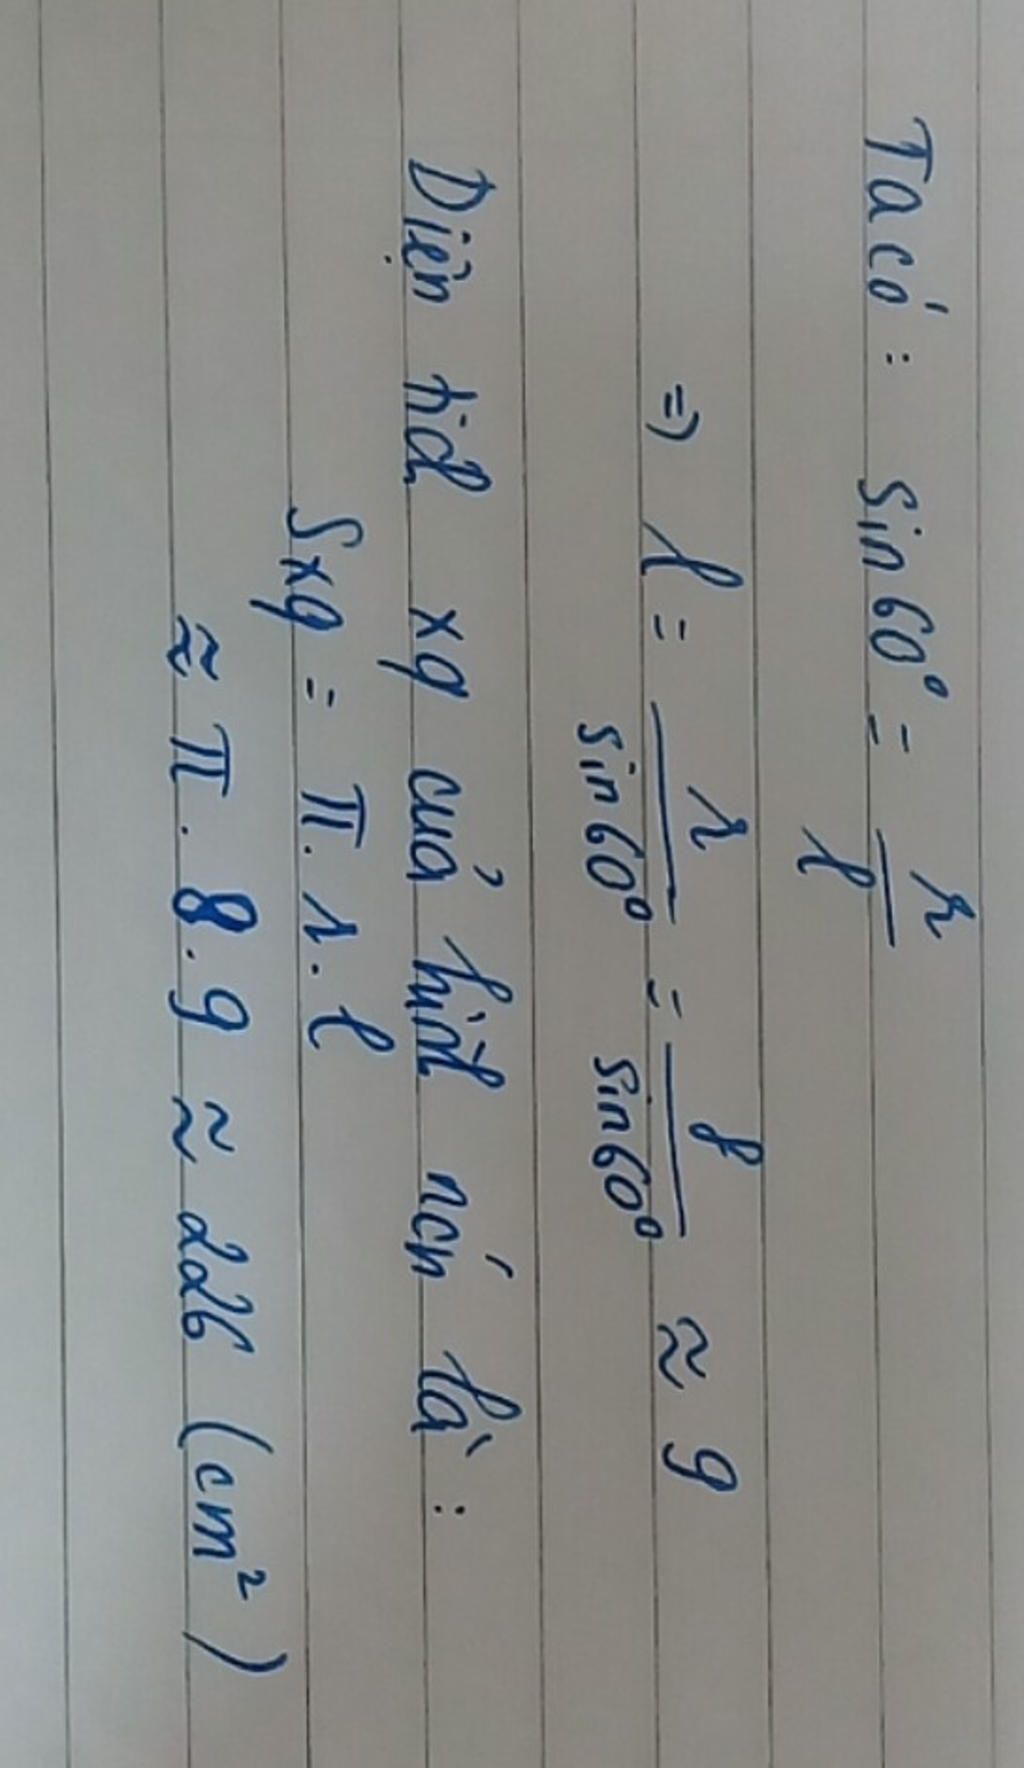 Ta có: sin 60° = r/l
=) l = r/sin60° = 8/sin60° ≈ 9
Diện tích xq của hình nón là:
Sxq = π. r. l
≈ π. 8. 9 ≈ 226 (cm²)